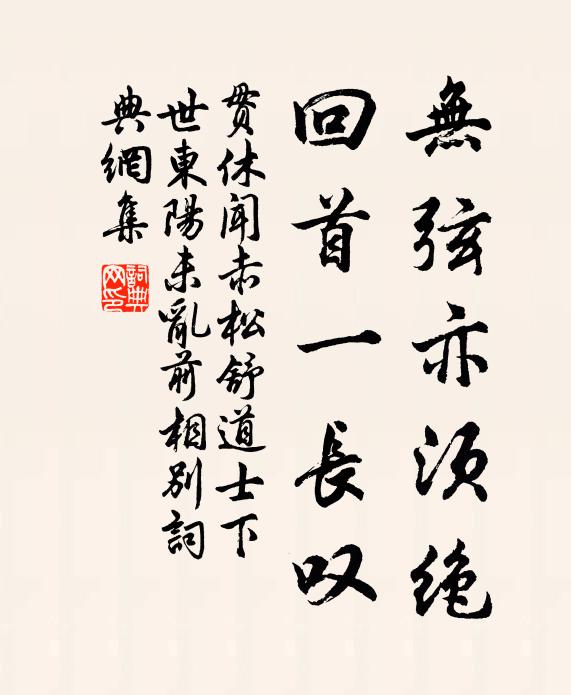 無弦亦須絶
回首一長叹
貫休聞赤松舒道士下
世東陽未亂前相別詞
典網集
詞典
网印